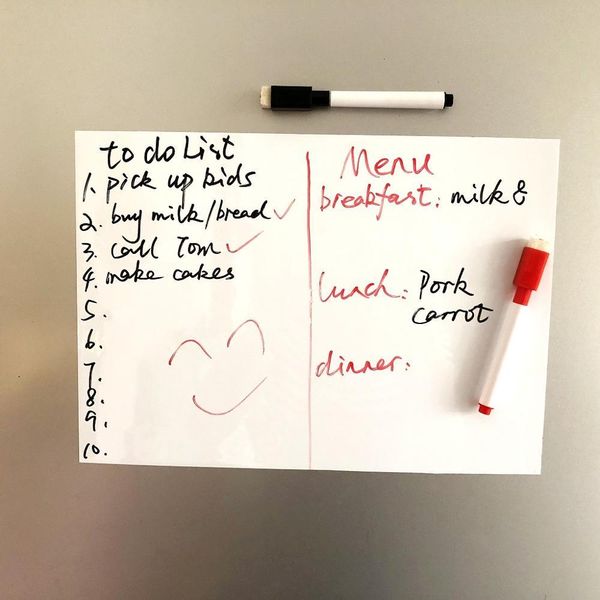 to do List
1. pick up kids
2. buy milk/bread ✓
3. call Tom ✓
4. make cakes
5.
6.
7.
8.
9.
10.
Menu
breakfast: milk &
lunch: Pork
carrot
dinner: